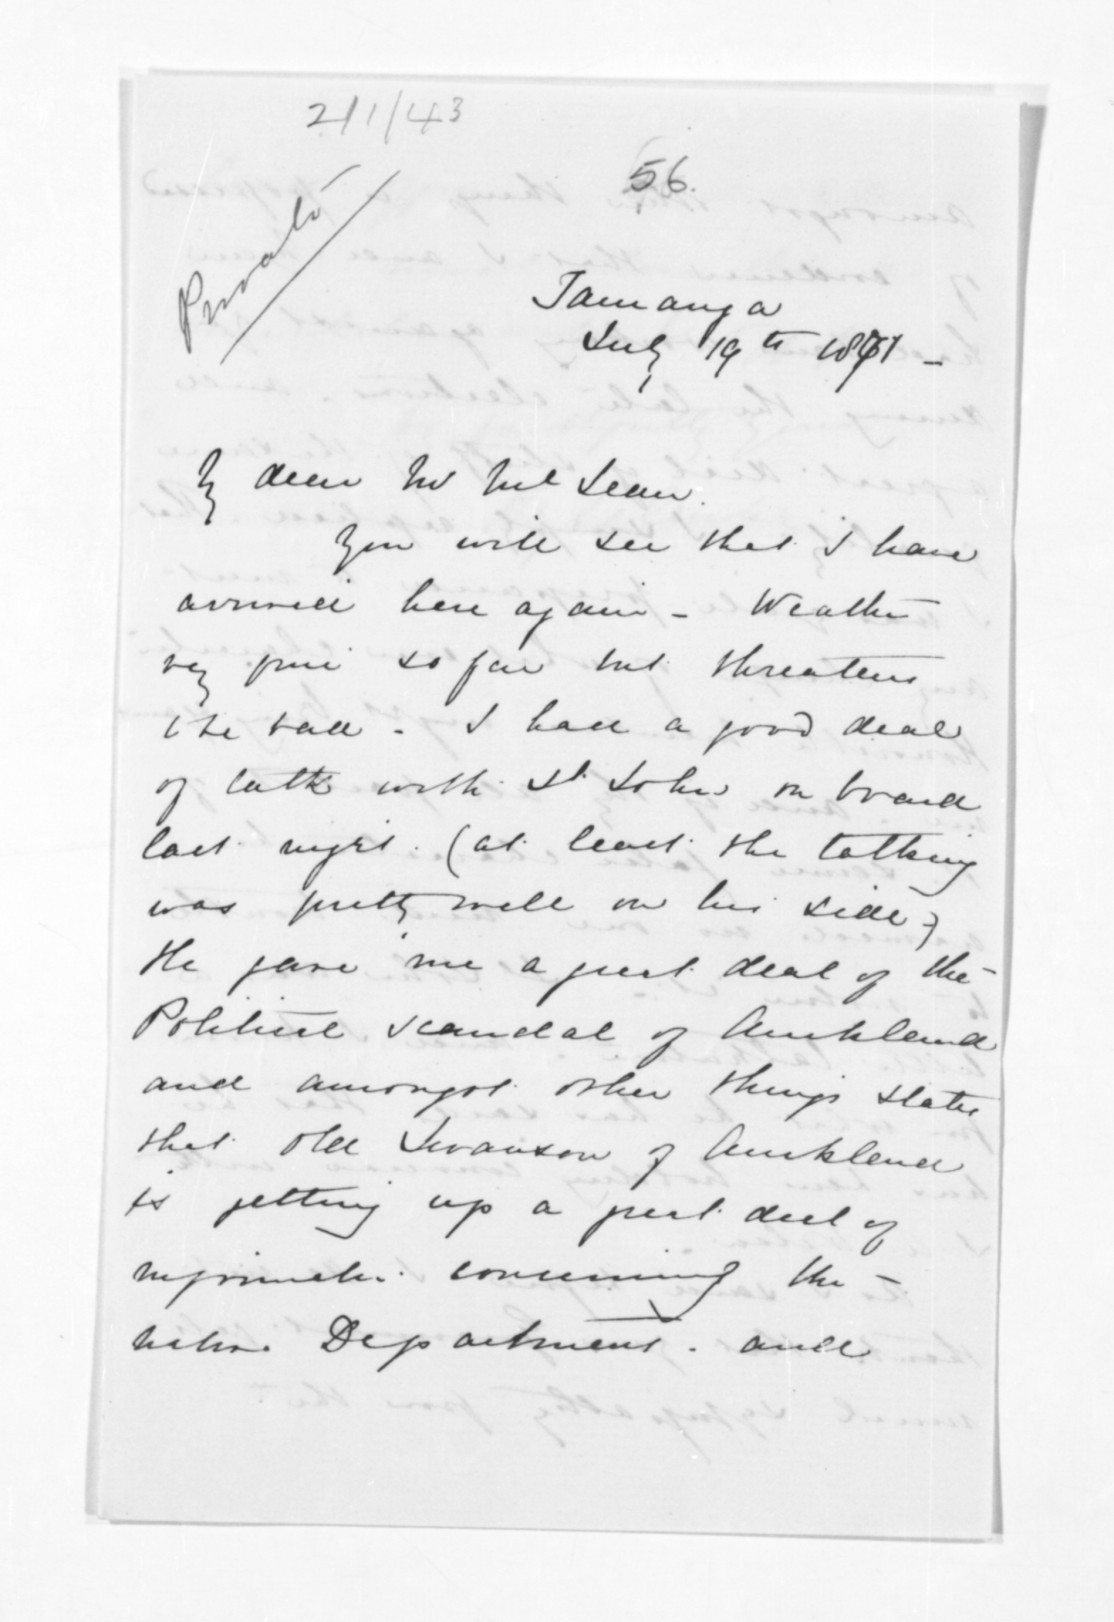 211/43
56.
Private
Tauranga
July 19th 1871 -
My dear Mr McLean.
You will see that I have
arrived here again - Weather
very fine so far but threatens
to be bad - I had a good deal
of talk with St John on board
last night. (at least the talking
was pretty well on his side)
He gave me a great deal of the
Political scandal of Auckland
and amongst other things states
that old Swanson of Auckland
is getting up a great deal of
information concerning the
native Department. and